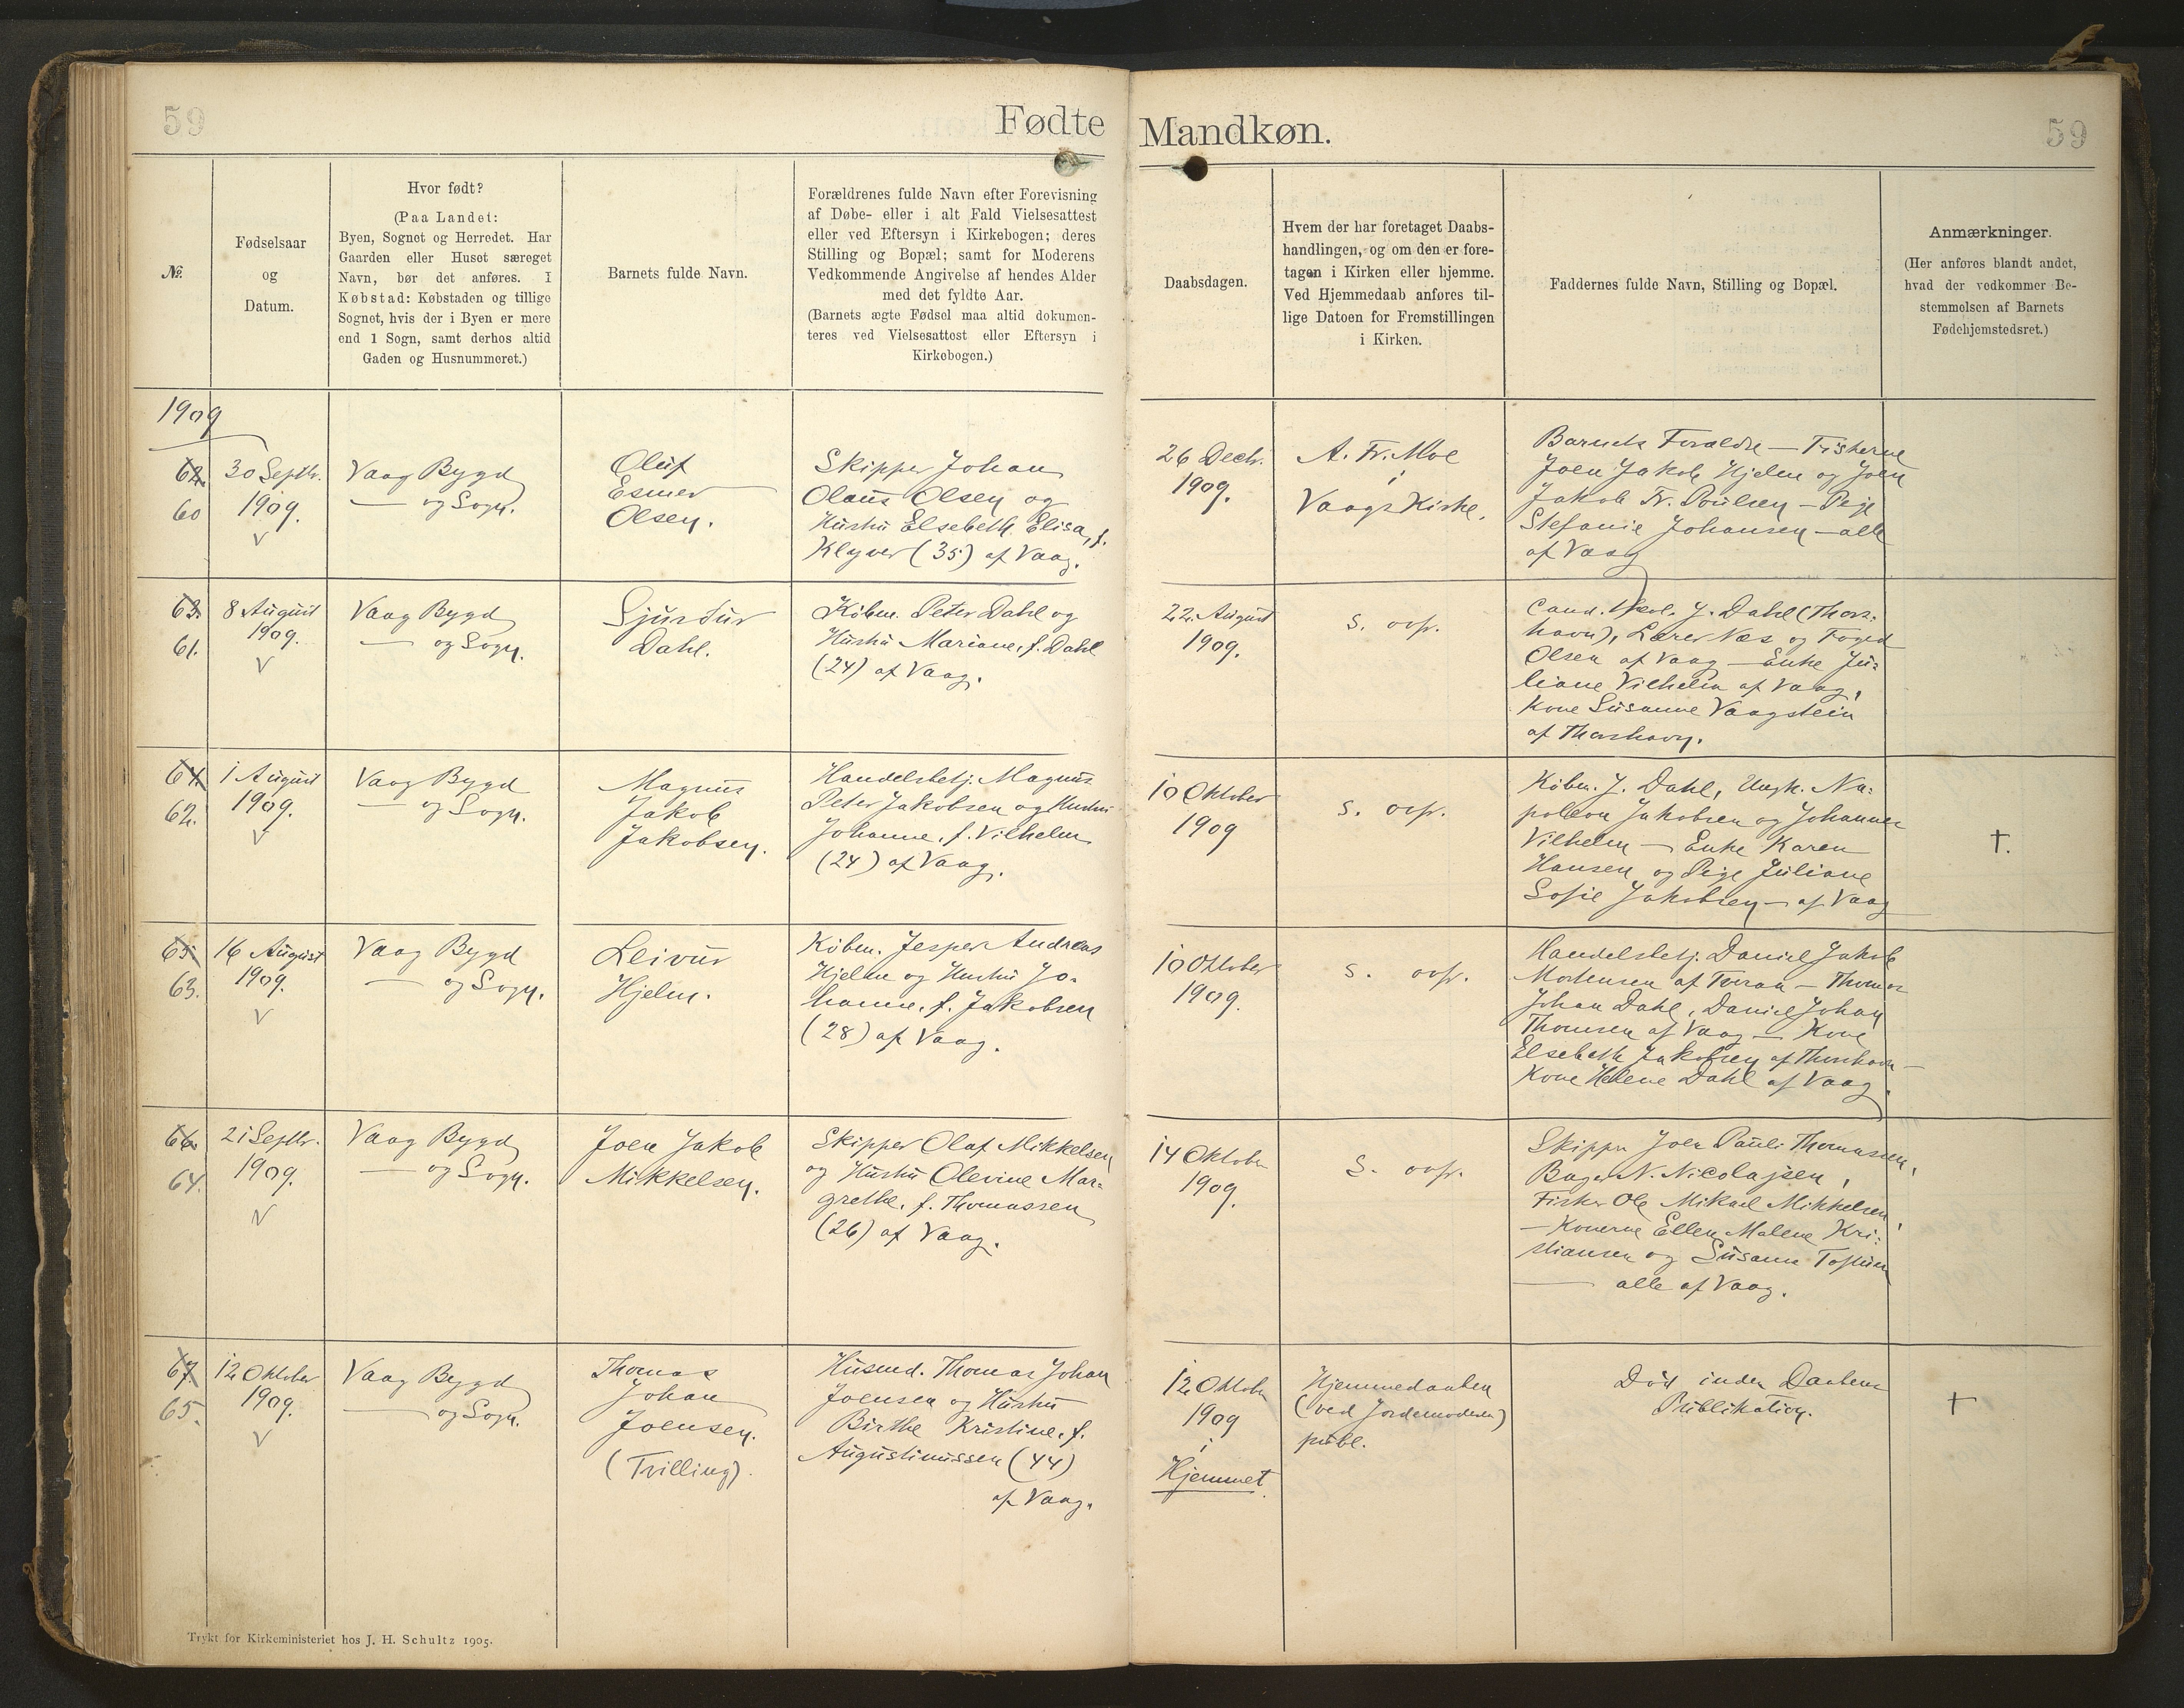 59
Fødte
Mandkøn.
59
№
Fødselsaar
og
Datum.
Hvor født?
(Paa Landet:
Byen, Sognet og Herredet. Har
Gaarden eller Huset særeget
Navn, bør det anføres. I
Købstad: Købstaden og tillige
Sognet, hvis der i Byen er mere
end 1 Sogn, samt derhos altid
Gaden og Husnummeret.)
Barnets fulde Navn.
Forældrenes fulde Navn efter Forevisning
af Døbe- eller i alt Fald Vielsesattest
eller ved Eftersyn i Kirkebogen; deres
Stilling og Bopæl; samt for Moderens
Vedkommende Angivelse af hendes Alder
med det fyldte Aar.
(Barnets ægte Fødsel maa altid dokumen-
teres ved Vielsesattest eller Eftersyn i
Kirkebogen.)
Daabsdagen.
Hvem der har foretaget Daabs-
handlingen, og om den er fore-
tagen i Kirken eller hjemme.
Ved Hjemmedaab anføres til-
lige Datoen for Fremstillingen
i Kirken.
Faddernes fulde Navn, Stilling og Bopæl.
Anmærkninger.
(Her anføres blandt andet,
hvad der vedkommer Be-
stemmelsen af Barnets
Fødehjemstedsret.)
1909
62.
60
30 Septbr.
1909.
Vaag Bygd
— og Sogn.
Oluf
Esmer
Olsen.
Skipper Johan
Olaus Olsen og
Hustru Elsebeth Elisa, f.
Klyver (35) af Vaag.
26 Decbr.
1909.
A. Fr. Moe
i
Vaags Kirke.
Barnets Forældre — Fiskerne
Joen Jakob Hjelm og Joen
Jakob Fr. Poulsen — Pige
Stefanie Johansen — alle
af Vaag
63.
61.
8 August
1909.
Vaag Bygd
— og Sogn.
Sjurdur
Dahl.
Købm. Peter Dahl og
Hustru Mariane, f. Dahl
(24) af Vaag.
22. August
1909.
s. ovf.
Cand. theol. J. Dahl (Thors-
havn), Lærer Næs og Foged
Olsen af Vaag — Enke Ju-
liane Vilhelm af Vaag,
Kone Susanne Vaagstein
af Thorshavn.
64.
62.
1 August
1909.
Vaag Bygd
— og Sogn.
Magnus
Jakob
Jakobsen.
Handelsbetj. Magnus
Peter Jakobsen og Hustru
Johanne, f. Vilhelm
(24) af Vaag.
10 Oktober
1909
s. ovf.
Købm. J. Dahl, Ungk. Na-
poleon Jakobsen og Johannes
Vilhelm — Enke Karen
Hansen og Pige Juliane
Sofie Jakobsen — af Vaag
†.
65.
63.
16 August
1909.
Vaag Bygd
— og Sogn.
Leivur
Hjelm.
Købm. Jesper Andreas
Hjelm og Hustru Jo-
hanne, f. Jakobsen
(28) af Vaag.
10 Oktober
1909.
s. ovf.
Handelsbetj. Daniel Jakob
Mortensen af Tveraa — Thomas
Johan Dahl, Daniel Johan
Thomsen af Vaag — Kone
Elsebeth Jakobsen af Thorshavn —
Kone Helene Dahl af Vaag.
66.
64.
21 Septbr.
1909.
Vaag Bygd
— og Sogn.
Joen Jakob
Mikkelsen.
Skipper Olaf Mikkelsen
og Hustru Olevine Mar-
grethe, f. Thomassen
(26) af Vaag.
14 Oktober
1909.
s. ovf.
Skipper Joen Pauli Thomassen,
Bager N. Nicolajsen,
Fisker Ole Mikael Mikkelsen,
— Konerne Ellen Malene Kri-
stiansen og Susanne
— alle af Vaag.
67.
65.
12 Oktober
1909.
Vaag Bygd
— og Sogn.
Thomas
Johan
Joensen.
(Tvilling).
Husmd. Thomas Johan
Joensen og Hustru
Birthe Kristine, f.
Augustinussen (44)
af Vaag.
12 Oktober
1909
i
Hjemmet.
Hjemmedaaben
(ved Jordemoderen)
publ.
Død inden Daabens
Publikation.
†
Trykt for Kirkeministeriet hos J. H. Schultz 1905.